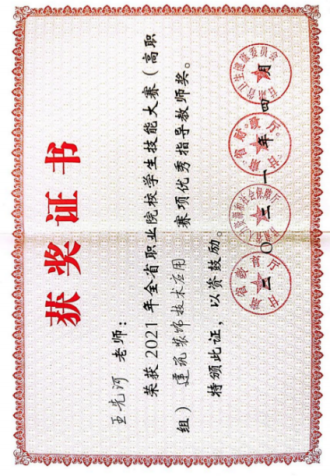 获奖证书
王先河 老师:
荣获2021年全省职业院校学生技能大赛(高职
组)建筑装饰技术应用 赛项优秀指导教师奖。
特颁此证,以资鼓励。
二〇二一年四月